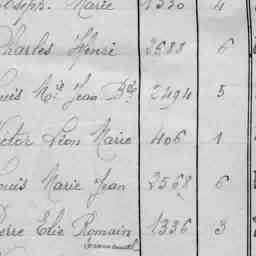 Joseph Marie 1330 4
Charles Henri 2588 6
Louis M.ie Jean B.te 2494 5
Victor Léon Marie 406 1
Louis Marie Jean 2568 6
Pierre Elie Romain 1336 3